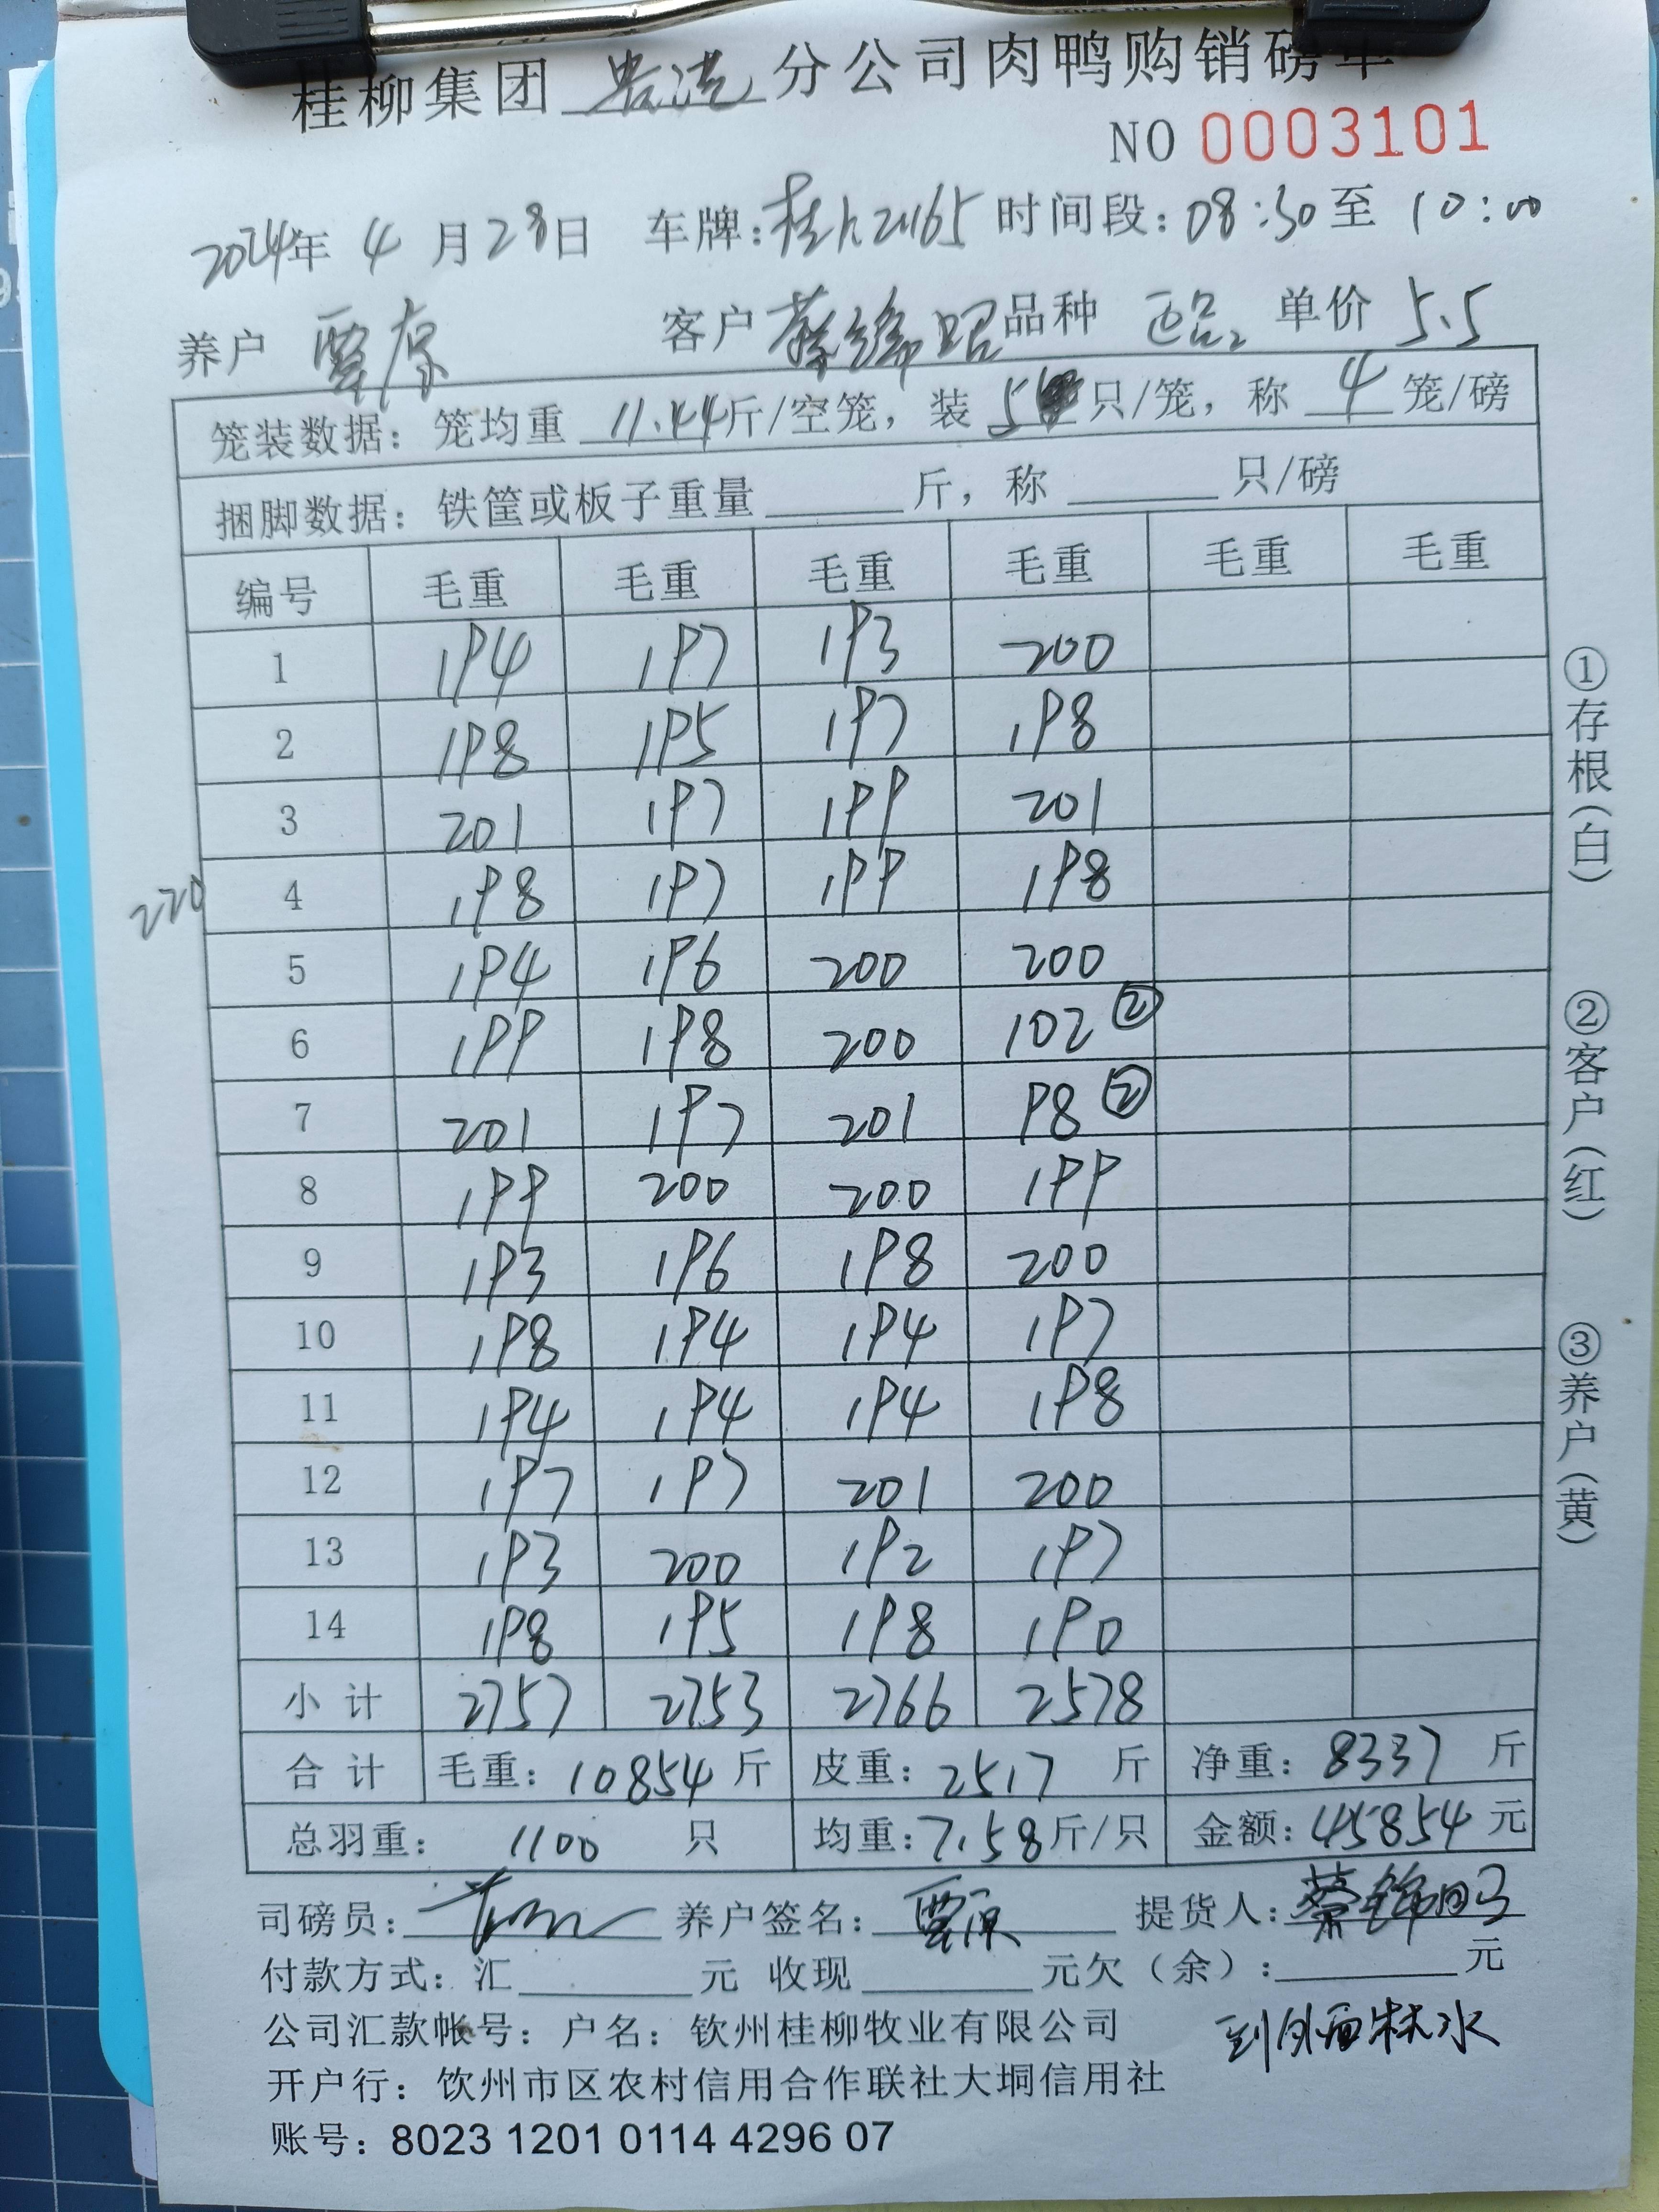 桂柳集团 贵港 分公司肉鸭购销磅单
NO 0003101
2024年 4 月 28日 车牌: 时间段: 08:30 至 10:00
养户 覃原 客户 蔡锦昭 品种 单价 5.5
笼装数据: 笼均重 11.44 斤/空笼, 装 5 只/笼, 称 4 笼/磅
捆脚数据: 铁筐或板子重量 斤, 称 只/磅
编号 毛重 毛重 毛重 毛重 毛重 毛重
1 194 197 193 200
2 198 195 197 198
3 201 197 199 201
220
4 198 197 199 198
5 194 196 200 200
6 199 198 200 102 ②
7 201 197 201 98 ②
8 199 200 200 199
9 193 196 198 200
10 198 194 194 197
11 194 194 194 198
12 197 197 201 200
13 193 200 192 197
14 198 195 198 190
小计 2757 2753 2766 2578
合计 毛重: 10854 斤 皮重: 2517 斤 净重: 8337 斤
总羽重: 1100 只 均重: 7.58 斤/只 金额: 45854 元
司磅员: 养户签名: 覃原 提货人: 蔡锦昭
付款方式: 汇 元 收现 元欠(余): 元
公司汇款帐号: 户名: 钦州桂柳牧业有限公司
开户行: 钦州市区农村信用合作联社大垌信用社
账号: 8023 1201 0114 4296 07
①存根(白)
②客户(红)
③养户(黄)